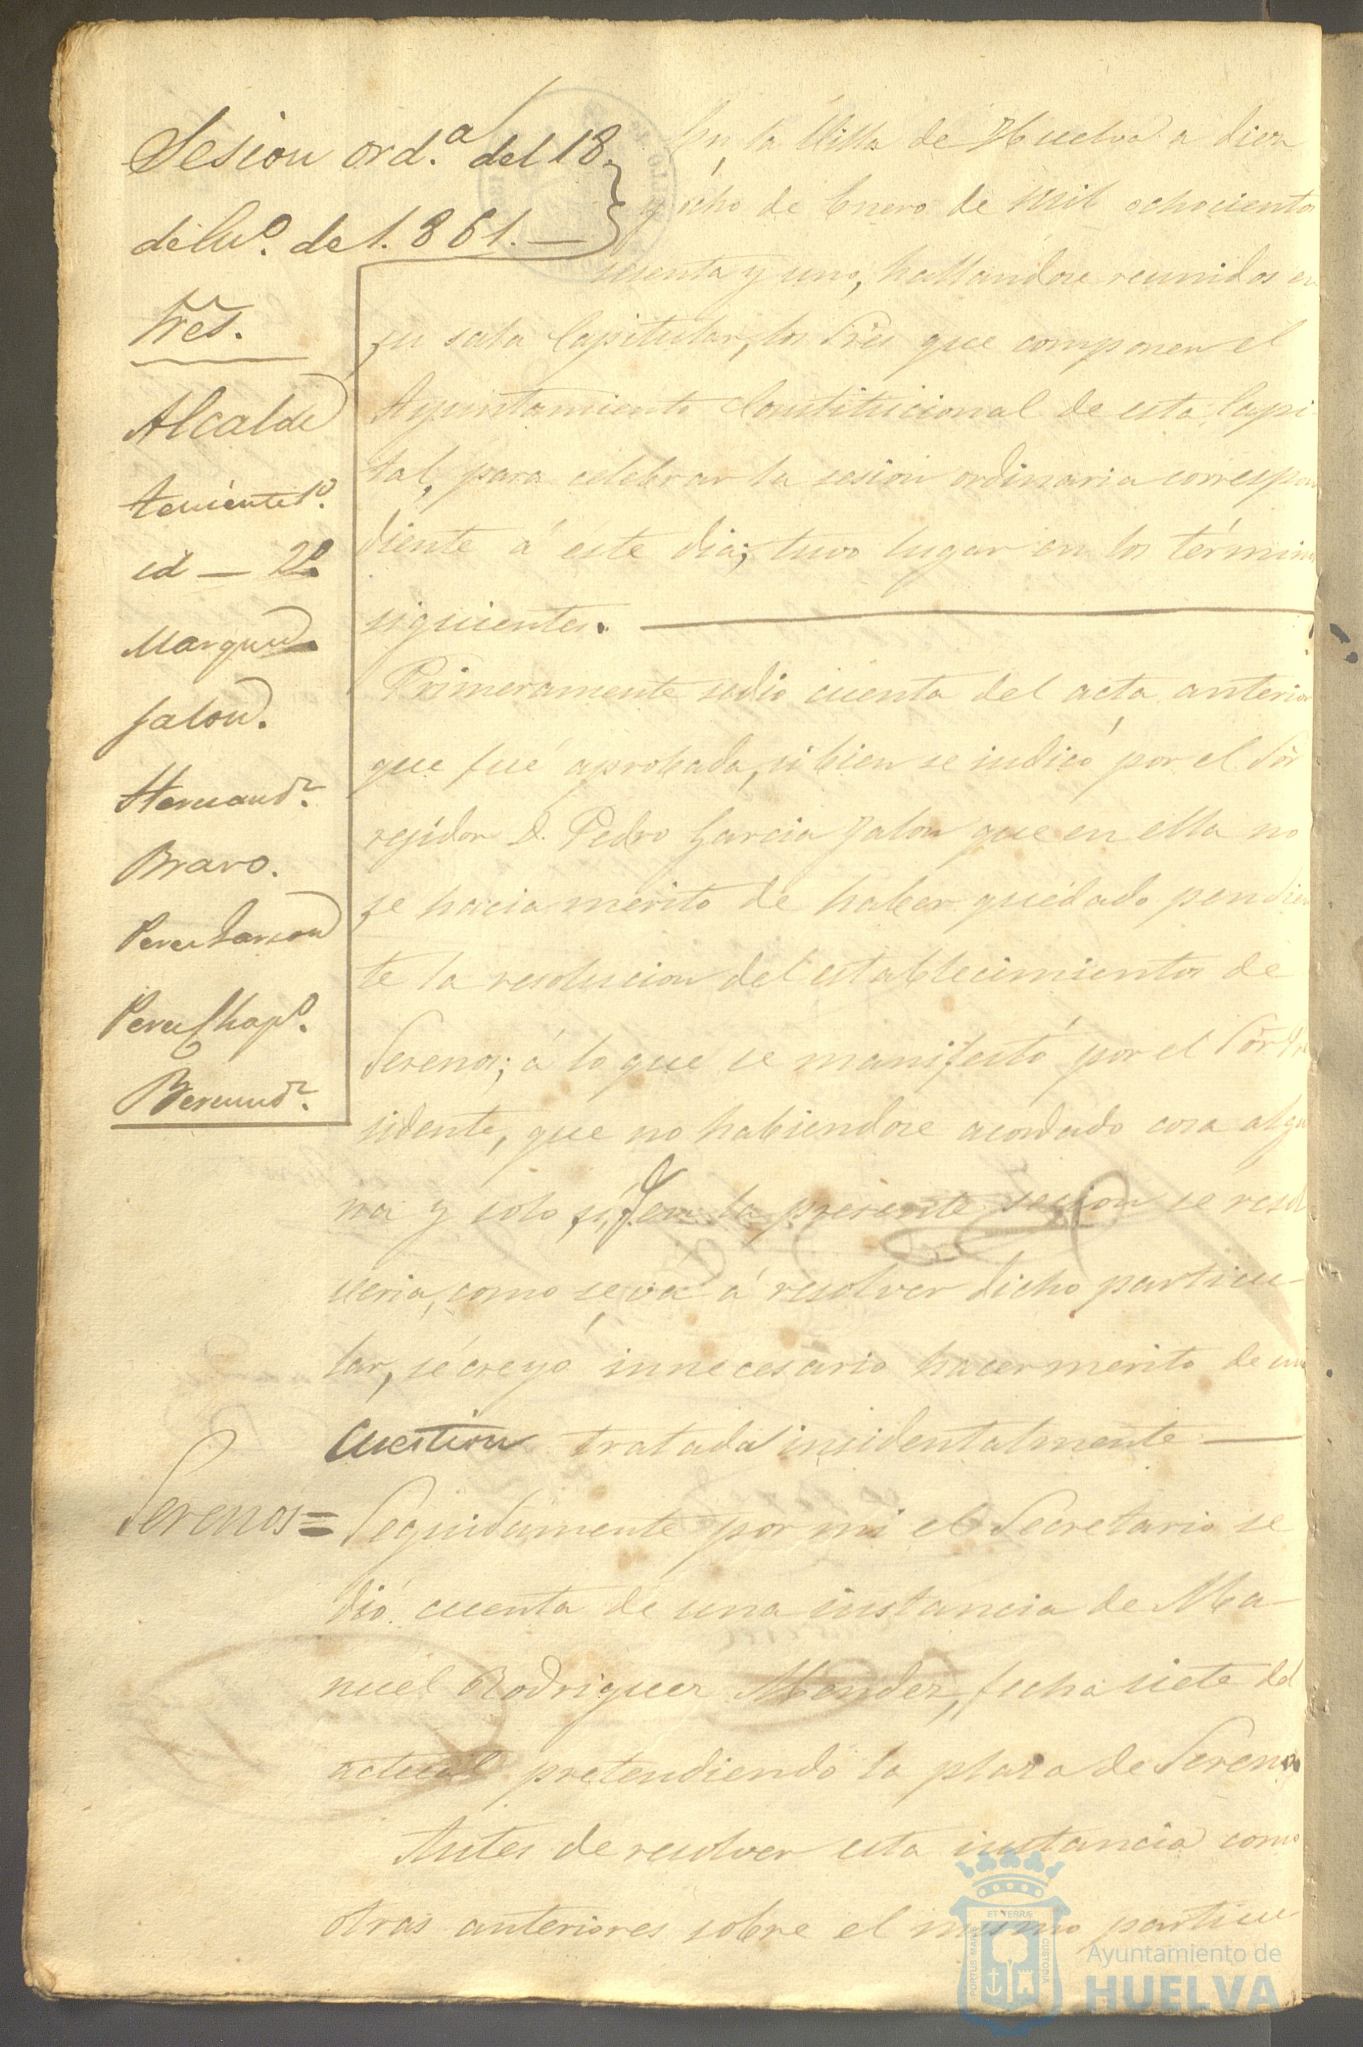 Sesion ord.ª del 18
de En.º de 1.861.—
Sres.
Alcalde
teniente 1º.
id — 2º.
Marquez
Jalon.
Hernand.z
Bravo.
Perez Garzon
Perez Chap.º.
Bermud.z
En la Villa de Huelva a diez
y ocho de Enero de mil ochocientos
sesenta y uno, hallandose reunidos en
su sala Capitular, los Sres que componen el
Ayuntamiento Constitucional de esta Capi-
tal, para celebrar la sesion ordinaria correspon
diente á este dia; tuvo lugar en los términos
siguientes.
Primeramente se dio cuenta del acta anterior
que fué aprobada, si bien se indicó por el Sor
rejidor D. Pedro Garcia Jalon que en ella no
se hacia merito de haber quedado pendien
te la resolucion del establecimientos de
Serenos; á lo que se manifestó por el Sor Pre
sidente, que no habiendose acordado cosa algu
na y solo si, q.e en la presente sesion se resol
veria, como se va á resolver dicho particu-
lar, se creyó innecesario hacer merito de una
cuestion tratada insidentalmente —
Serenos =
Seguidamente por mi el Secretario se
dió cuenta de una instancia de Ma-
nuel Rodriguez Mendez, fecha siete del
actual pretendiendo la plaza de Sereno
Antes de resolver esta instancia como
otras anteriores sobre el mismo particu
PORTUS MARIS ET TERRÆ CUSTODIA
Ayuntamiento de
HUELVA